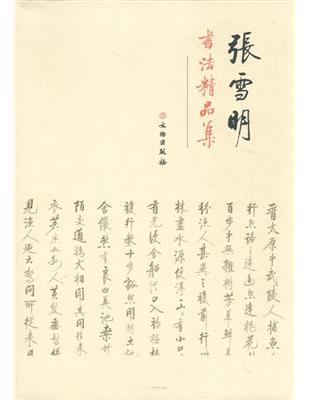 張雪明
書法精品集
文物出版社
晉太原中武陵人捕魚
百步中無雜樹芳草鮮美
紛漁人甚異之復前行
林盡水源便得一山山有小口
有光便舍船從口入初極狹
復行數十步豁然開朗土地
舍儼然有良田美池桑竹
陌交通雞犬相聞其中往來
衣著悉如外人黃髮垂髫
見漁人乃大驚問所從來具